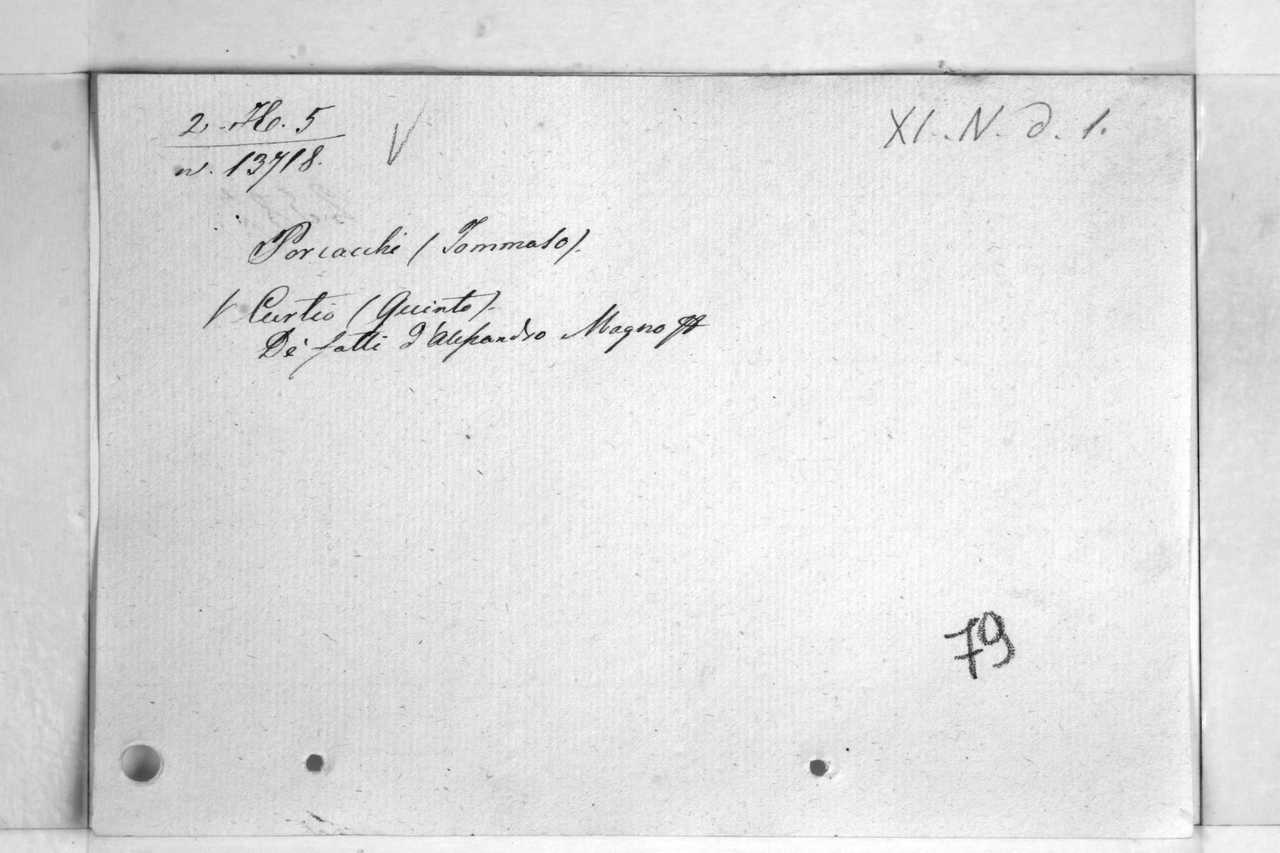 2. H. 5
XI. N. d. 1.
n. 13718.
Porcacchi (Tommaso).
Curtio (Quinto).
De' fatti d'Alessandro Magno
79